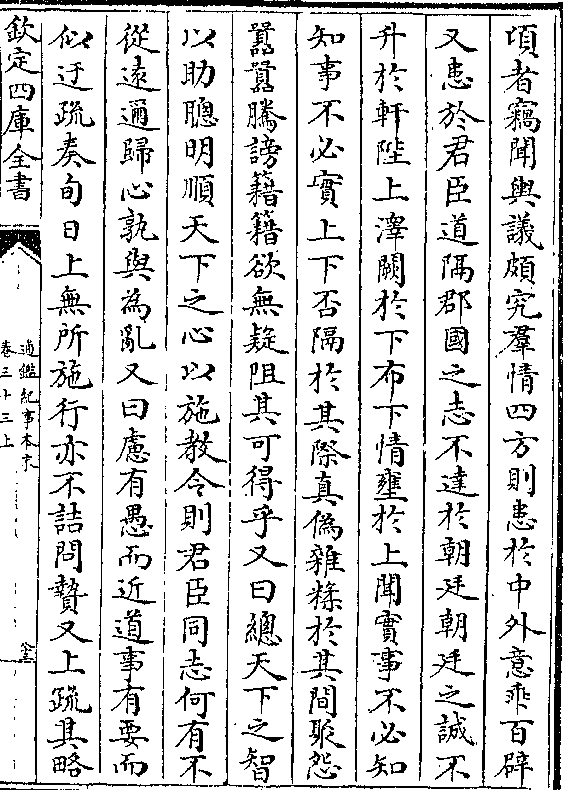 頃者竊聞輿議頗究羣情四方則患於中外意乖百辟
又患於君臣道隔郡國之志不達於朝廷朝廷之誠不
升於軒陛上澤闕於下布下情壅於上聞實事不必知
知事不必實上下否隔於其際真偽雜糅於其間聚怨
囂囂騰謗籍籍欲無疑阻其可得乎又曰總天下之智
以助聰明順天下之心以施教令則君臣同志何有不
從遠邇歸心孰與為亂又曰慮有愚而近道事有要而
似迂疏奏旬日上無所施行亦不詰問贄又上疏其略
欽定四庫全書
通鑑紀事本末
卷三十三上